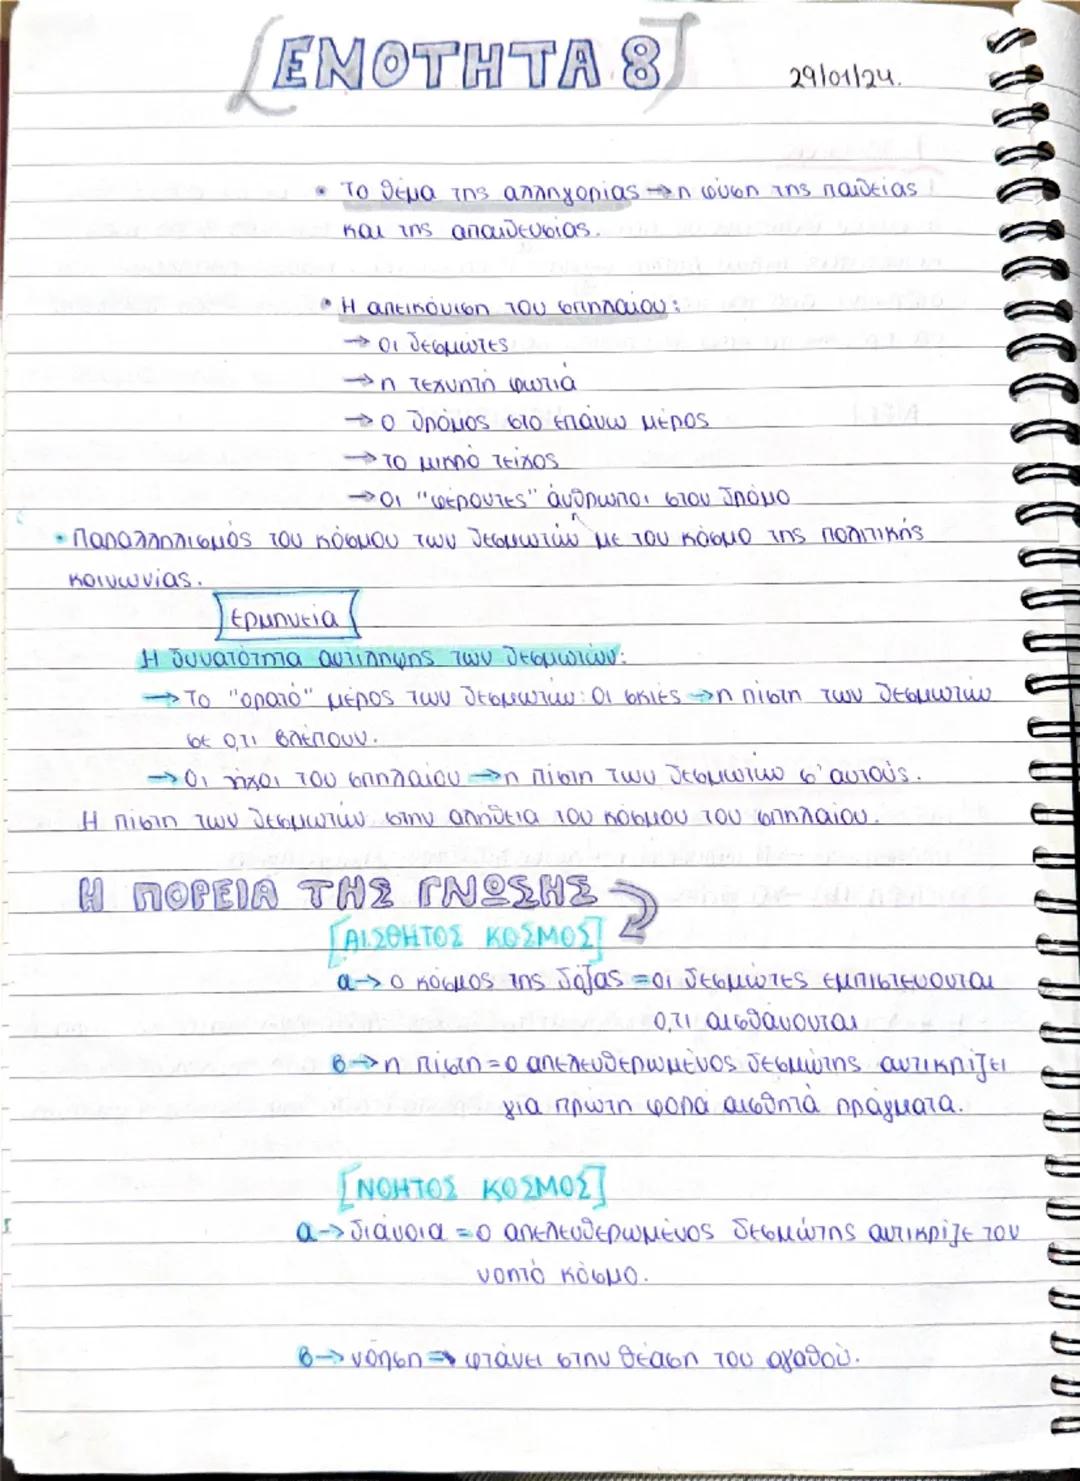 [ΕΝΟΤΗΤΑ 8]
29/01/24.
• Το θέμα της αλληγορίας → η φύση της παιδείας
και της απαιδευσίας.
• Η απεικόνιση του σπηλαίου:
→ οι δεσμώτες
→ η τεχνητή φωτιά
→ ο δρόμος στο επάνω μέρος
→ το μικρό τείχος
→ Οι "φέροντες" άνθρωποι στον δρόμο
• Παραλληλισμός του κόσμου των δεσμωτών με τον κόσμο της πολιτικής
κοινωνίας.
Ερμηνεία
Η δυνατότητα αντίληψης των δεσμωτών:
→ Το "ορατό" μέρος των δεσμωτών: Οι σκιές → η πίστη των δεσμωτών
σε ό,τι βλέπουν.
→ Οι ήχοι του σπηλαίου → η πίστη των δεσμωτών σ' αυτούς.
Η πίστη των δεσμωτών στην αλήθεια του κόσμου του σπηλαίου.
Η ΠΟΡΕΙΑ ΤΗΣ ΓΝΩΣΗΣ
[ΑΙΣΘΗΤΟΣ ΚΟΣΜΟΣ]
α → ο κόσμος της δόξας = οι δεσμώτες εμπιστεύονται
ό,τι αισθάνονται
β → η πίστη = ο απελευθερωμένος δεσμώτης αντικρίζει
για πρώτη φορά αισθητά πράγματα.
[ΝΟΗΤΟΣ ΚΟΣΜΟΣ]
α → διάνοια = ο απελευθερωμένος δεσμώτης αντικρίζε τον
νοητό κόσμο.
β → νόηση = φτάνει στην θέαση του αγαθού.